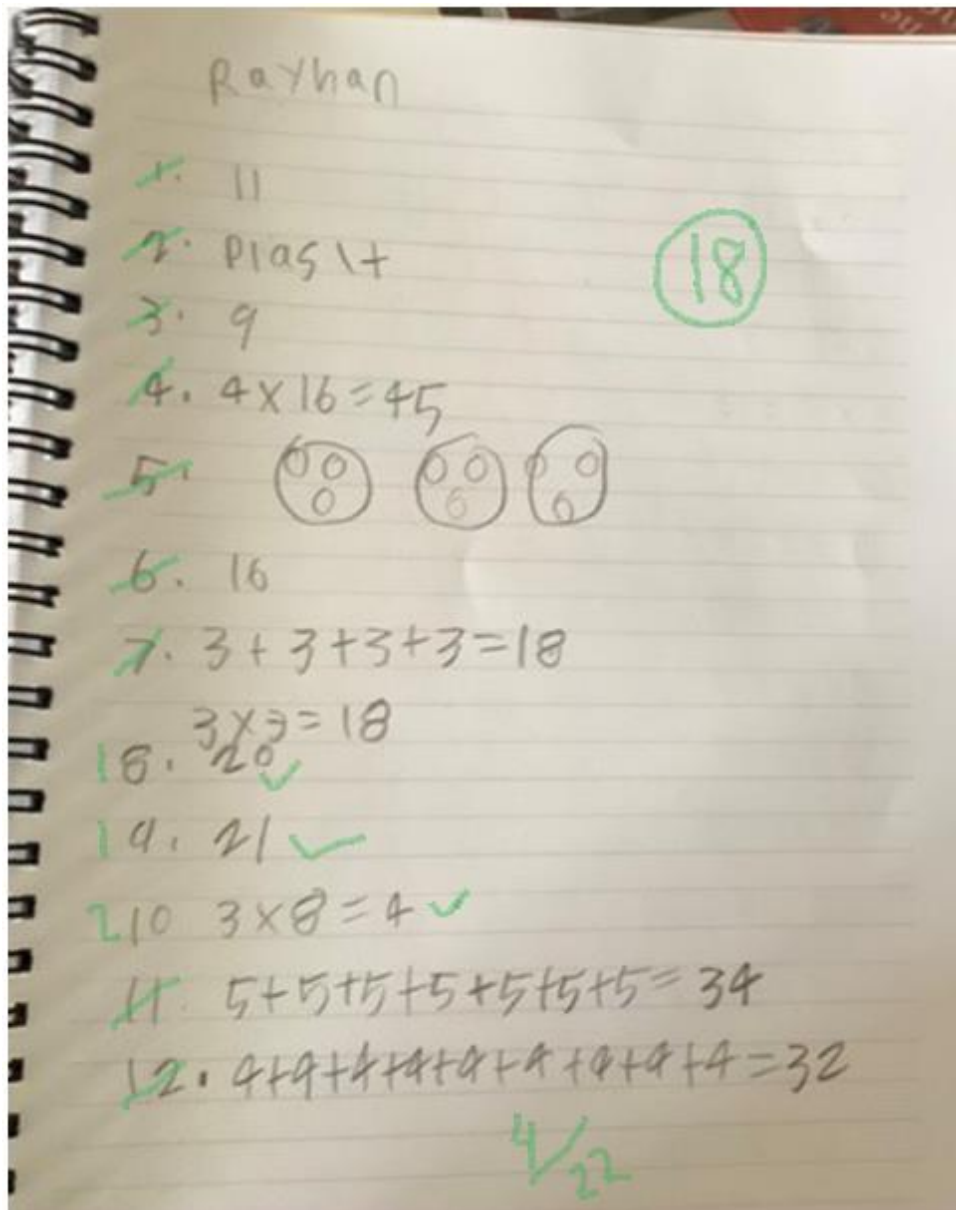 Rayhan
1. 11
2. Plas 1t
18
3. 9
4. 4 x 16 = 45
5.
6. 16
7. 3 + 3 + 3 + 3 = 18
3 x 3 = 18
1 8. 20
1 9. 21
2 10 3 x 8 = 4
11. 5+5+5+5+5+5+5 = 34
12. 4+4+4+4+4+4+4+4+4 = 32
4/22